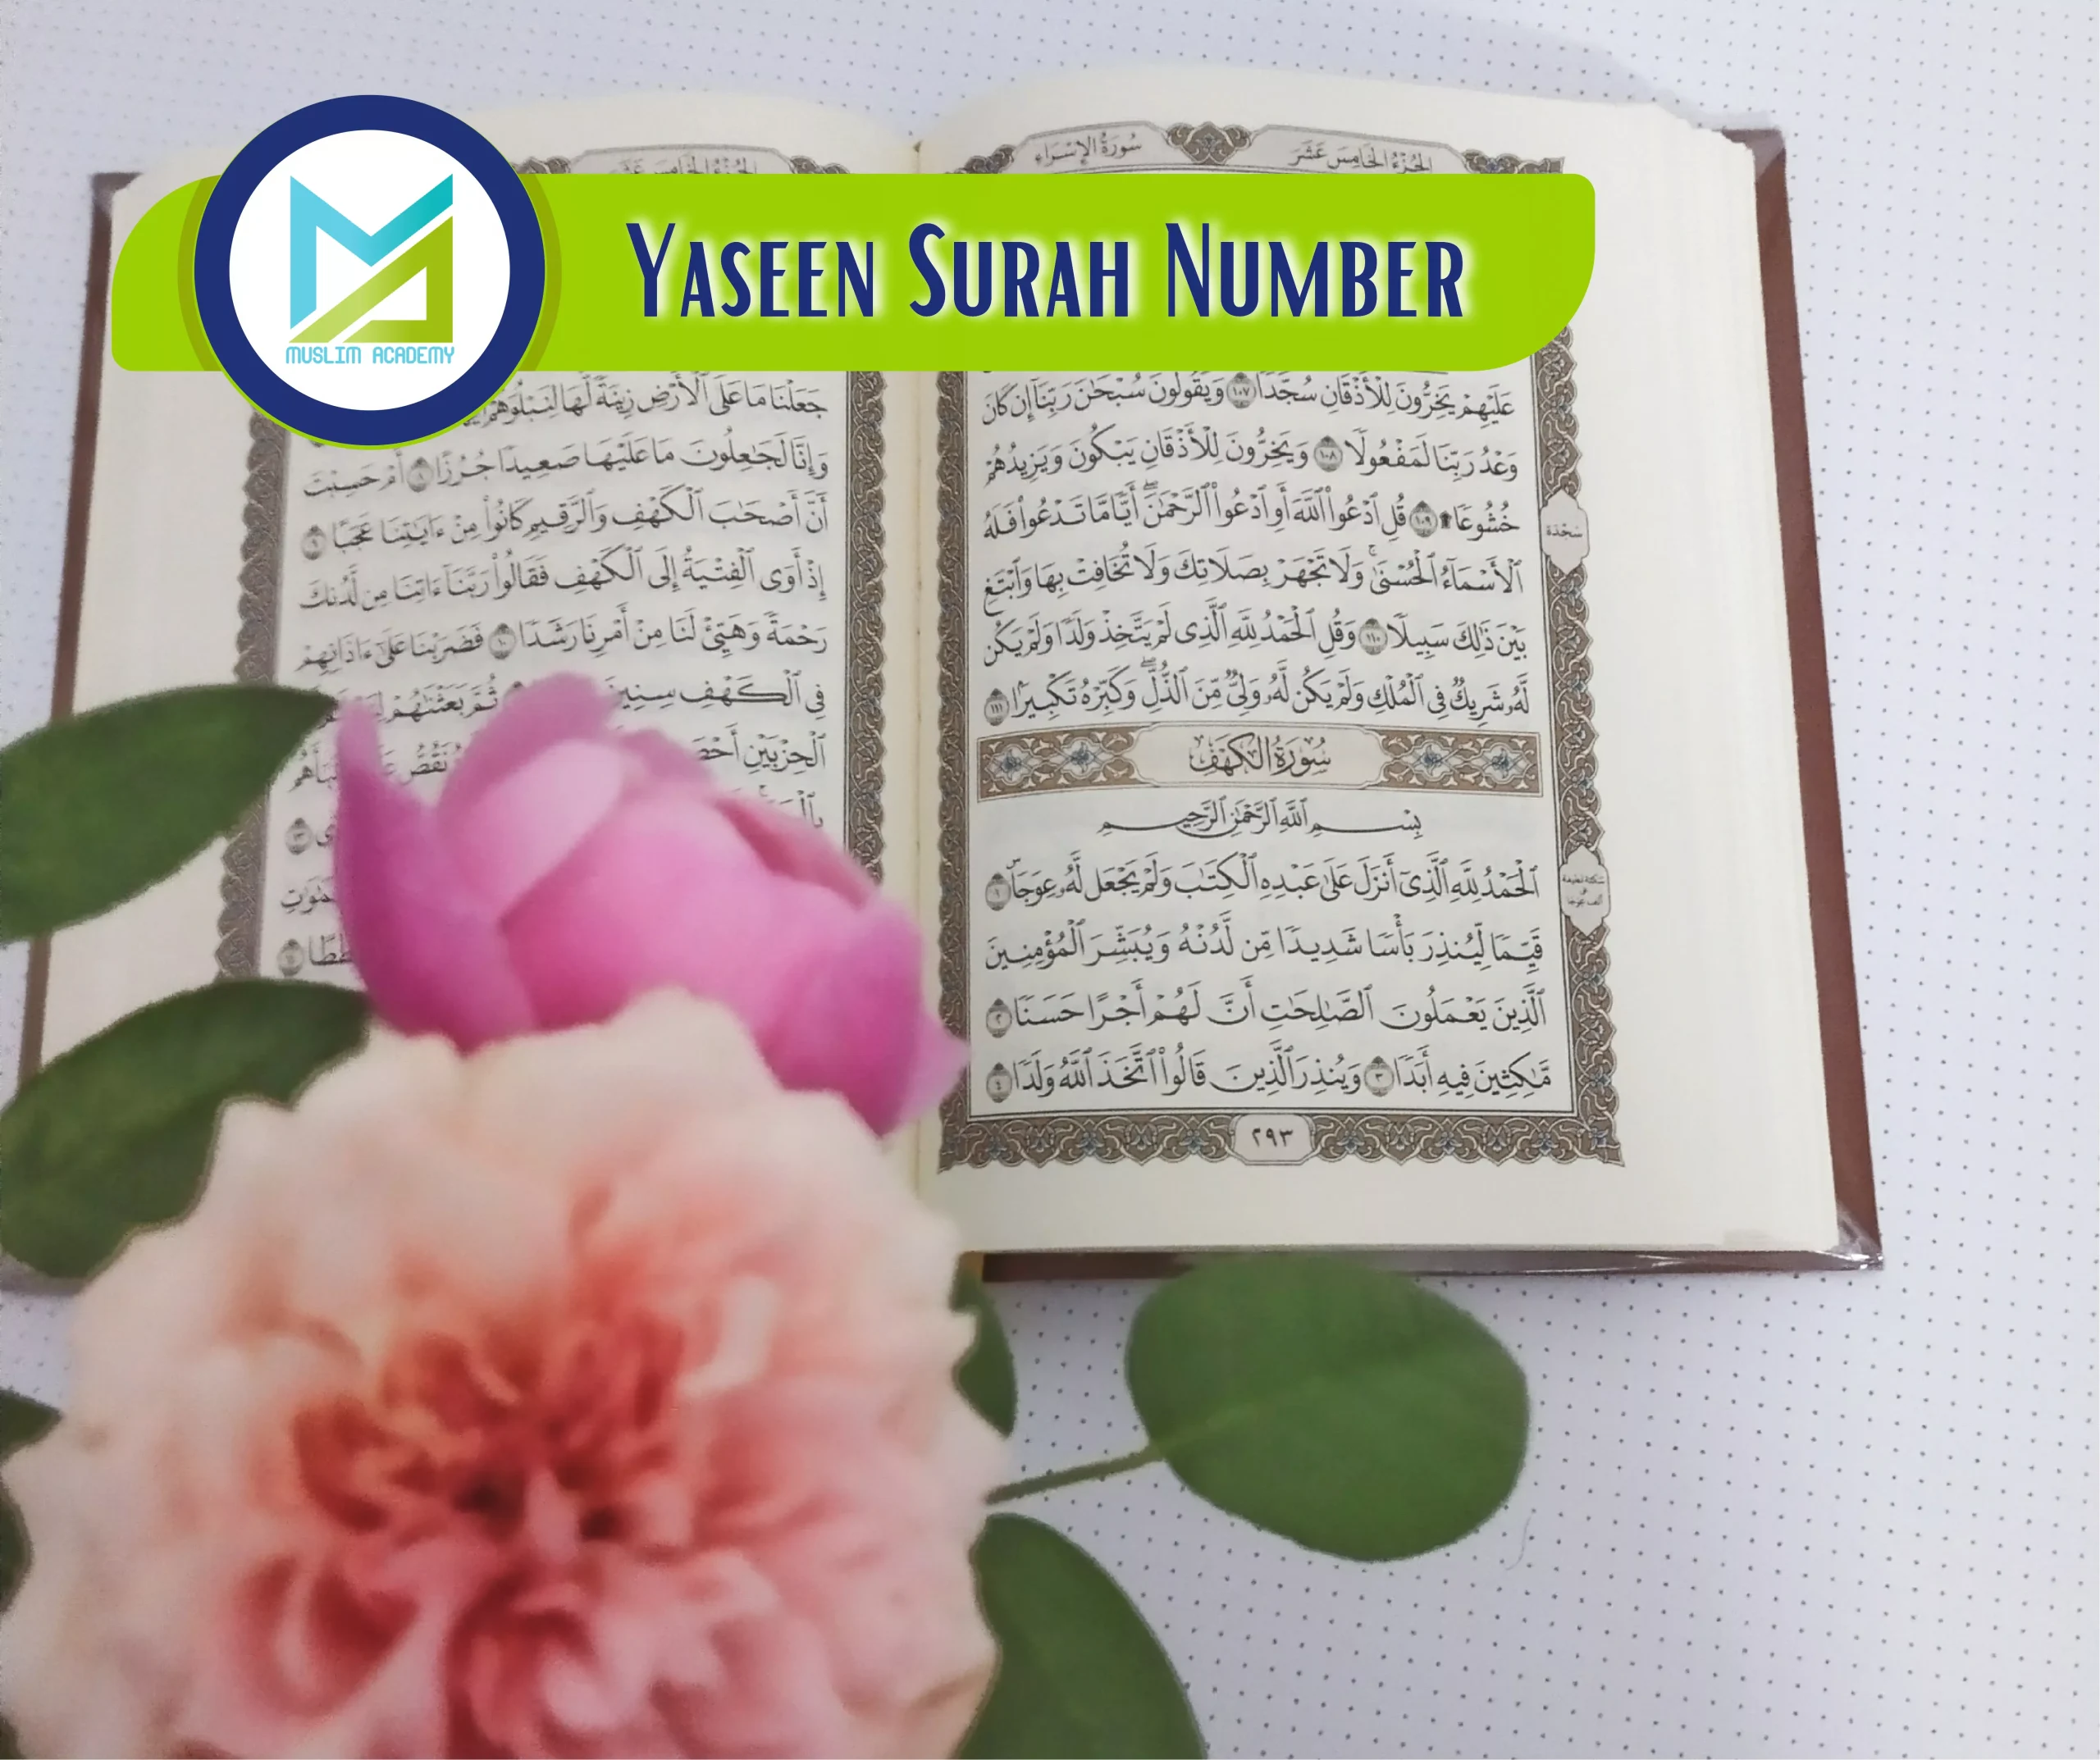 MUSLIM ACADEMY
YASEEN SURAH NUMBER
الجُزْءُ الخَامِسَ عَشَرَ
سُورَةُ الإِسْرَاءِ
عَلَيْهِمْ يَخِرُّونَ لِلْأَذْقَانِ سُجَّدًا ١٠٧ وَيَقُولُونَ سُبْحَٰنَ رَبِّنَآ إِن كَانَ
وَعْدُ رَبِّنَا لَمَفْعُولًا ١٠٨ وَيَخِرُّونَ لِلْأَذْقَانِ يَبْكُونَ وَيَزِيدُهُمْ
خُشُوعًا ۩ ١٠٩ قُلِ ٱدْعُوا۟ ٱللَّهَ أَوِ ٱدْعُوا۟ ٱلرَّحْمَٰنَ ۖ أَيًّا مَّا تَدْعُوا۟ فَلَهُ
ٱلْأَسْمَآءُ ٱلْحُسْنَىٰ ۚ وَلَا تَجْهَرْ بِصَلَاتِكَ وَلَا تُخَافِتْ بِهَا وَٱبْتَغِ
بَيْنَ ذَٰلِكَ سَبِيلًا ١١٠ وَقُلِ ٱلْحَمْدُ لِلَّهِ ٱلَّذِى لَمْ يَتَّخِذْ وَلَدًا وَلَمْ يَكُن
لَّهُۥ شَرِيكٌ فِى ٱلْمُلْكِ وَلَمْ يَكُن لَّهُۥ وَلِىٌّ مِّنَ ٱلذُّلِّ ۖ وَكَبِّرْهُ تَكْبِيرًۢا ١١١
سُورَةُ الكَهْفِ
بِسْمِ ٱللَّهِ ٱلرَّحْمَٰنِ ٱلرَّحِيمِ
ٱلْحَمْدُ لِلَّهِ ٱلَّذِىٓ أَنزَلَ عَلَىٰ عَبْدِهِ ٱلْكِتَٰبَ وَلَمْ يَجْعَل لَّهُۥ عِوَجَاۜ ١
قَيِّمًا لِّيُنذِرَ بَأْسًا شَدِيدًا مِّن لَّدُنْهُ وَيُبَشِّرَ ٱلْمُؤْمِنِينَ
ٱلَّذِينَ يَعْمَلُونَ ٱلصَّٰلِحَٰتِ أَنَّ لَهُمْ أَجْرًا حَسَنًا ٢
مَّٰكِثِينَ فِيهِ أَبَدًا ٣ وَيُنذِرَ ٱلَّذِينَ قَالُوا۟ ٱتَّخَذَ ٱللَّهُ وَلَدًا ٤
٢٩٣
سَجْدَة
جَعَلْنَا مَا عَلَى ٱلْأَرْضِ زِينَةً لَّهَا لِنَبْلُوَهُمْ
وَإِنَّا لَجَٰعِلُونَ مَا عَلَيْهَا صَعِيدًا جُرُزًا ٨ أَمْ حَسِبْتَ
أَنَّ أَصْحَٰبَ ٱلْكَهْفِ وَٱلرَّقِيمِ كَانُوا۟ مِنْ ءَايَٰتِنَا عَجَبًا ٩
إِذْ أَوَى ٱلْفِتْيَةُ إِلَى ٱلْكَهْفِ فَقَالُوا۟ رَبَّنَآ ءَاتِنَا مِن لَّدُنكَ
رَحْمَةً وَهَيِّئْ لَنَا مِنْ أَمْرِنَا رَشَدًا ١٠ فَضَرَبْنَا عَلَىٰٓ ءَاذَانِهِمْ
فِى ٱلْكَهْفِ سِنِينَ ثُمَّ بَعَثْنَٰهُمْ
ٱلْحِزْبَيْنِ نَقُصُّ